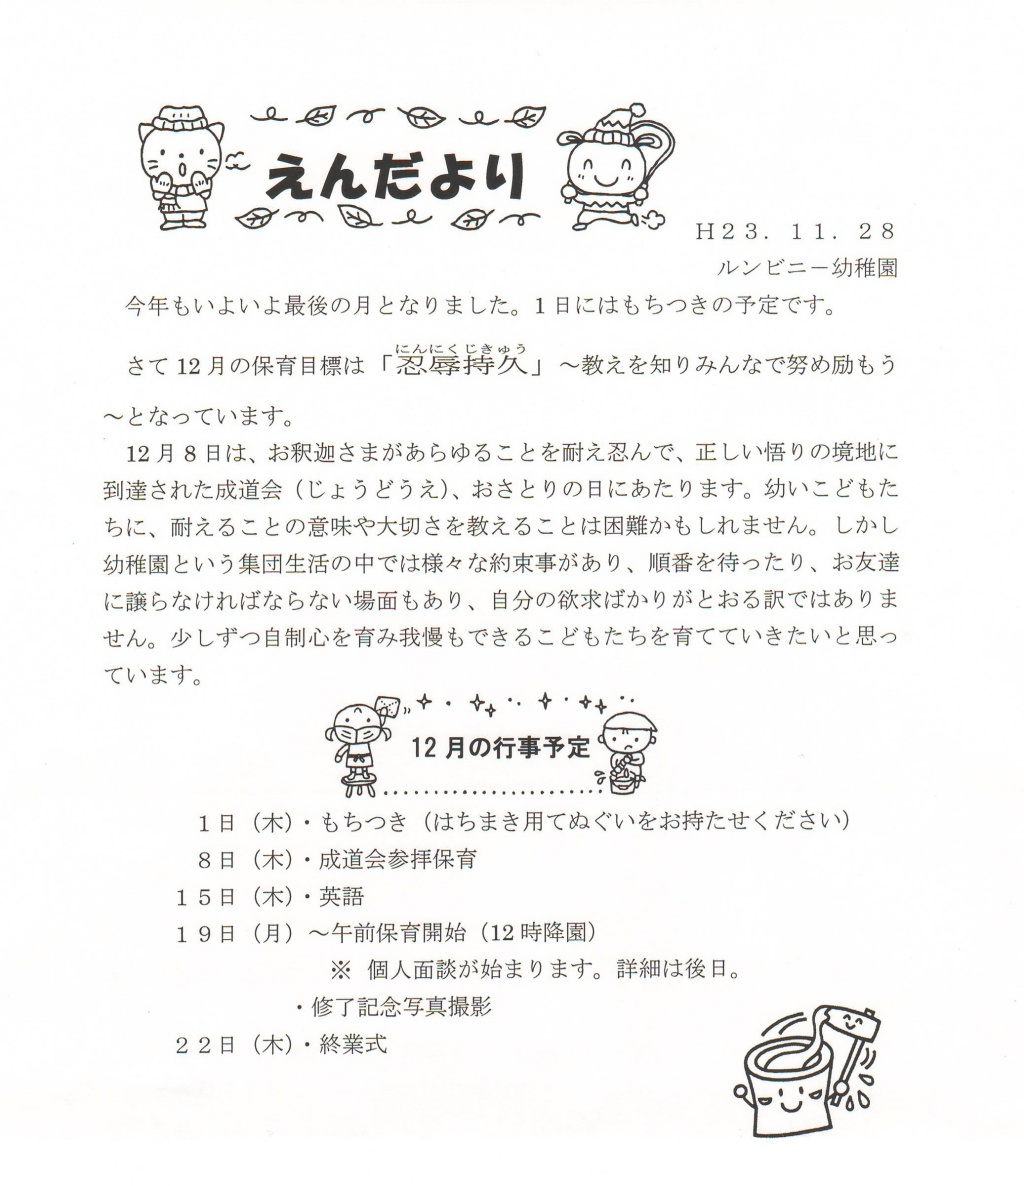 えんだより
H23．11．28
ルンビニー幼稚園
今年もいよいよ最後の月となりました。1日にはもちつきの予定です。
にんにくじきゅう
さて12月の保育目標は「忍辱持久」～教えを知りみんなで努め励もう
～となっています。
12月8日は、お釈迦さまがあらゆることを耐え忍んで、正しい悟りの境地に
到達された成道会（じょうどうえ）、おさとりの日にあたります。幼いこどもた
ちに、耐えることの意味や大切さを教えることは困難かもしれません。しかし
幼稚園という集団生活の中では様々な約束事があり、順番を待ったり、お友達
に譲らなければならない場面もあり、自分の欲求ばかりがとおる訳ではありま
せん。少しずつ自制心を育み我慢もできるこどもたちを育てていきたいと思っ
ています。
12月の行事予定
1日（木）・もちつき（はちまき用てぬぐいをお持たせください）
8日（木）・成道会参拝保育
15日（木）・英語
19日（月）～午前保育開始（12時降園）
※ 個人面談が始まります。詳細は後日。
・修了記念写真撮影
22日（木）・終業式